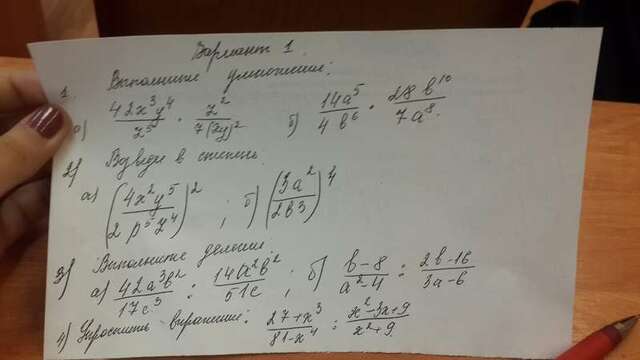 Вариант 1.
1. Выполните умножение:
а) 42x³y⁴/z⁵ · z²/7(2y)² б) 14a⁵/4b⁶ · 28b¹⁰/7a⁸.
2) Возведи в степень
а) (4x²y⁵/2p⁵z⁴)² ; б) (3a²/2b3)⁴
3) Выполните деление
а) 42a³b²/17c³ : 14a²b²/51c ; б) b-8/a²-4 : 2b-16/3a-6
4) Упростить выражение: 27+x³/81-x⁴ : x²-3x+9/x²+9